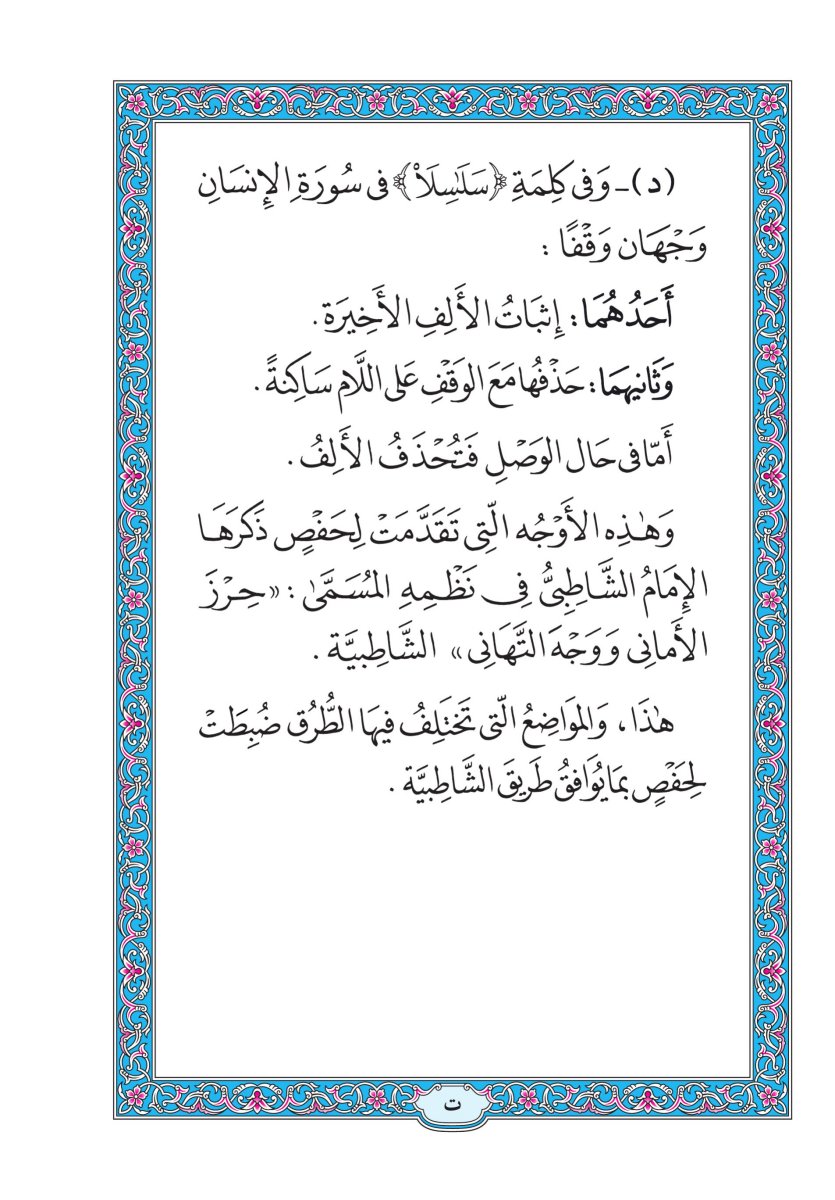 (د) ـ وَفى كلِمَةِ ﴿سَلَٰسِلَاْ﴾ فى سُورَةِ الإِنسَانِ
وَجْهَان وَقْفًا :
أَحَدُهُمَا: إِثبَاتُ الأَلِفِ الأَخِيرَة .
وَثَانِيهِمَا: حَذْفُها مَعَ الوَقْفِ عَلى اللَّام سَاكِنةً .
أَمّا فى حَال الوَصْلِ فَتُحْذَفُ الأَلِفُ .
وَهٰذِه الأَوْجُه الّتِى تَقَدَّمَتْ لِحَفْصٍ ذَكَرَهَا
الإِمَامُ الشَّاطِبىُّ فِى نَظْمِهِ المُسَمَّىٰ : «حِرْزَ
الأَمانِى وَوَجْهَ التَّهَانِى» الشَّاطِبيَّة .
هٰذَا ، وَالموَاضِعُ الّتى تَختَلِفُ فِيهَا الطُّرُق ضُبِطَتْ
لِحَفْصٍ بمَا يُوَافقُ طَرِيقَ الشَّاطِبيَّة .
ت